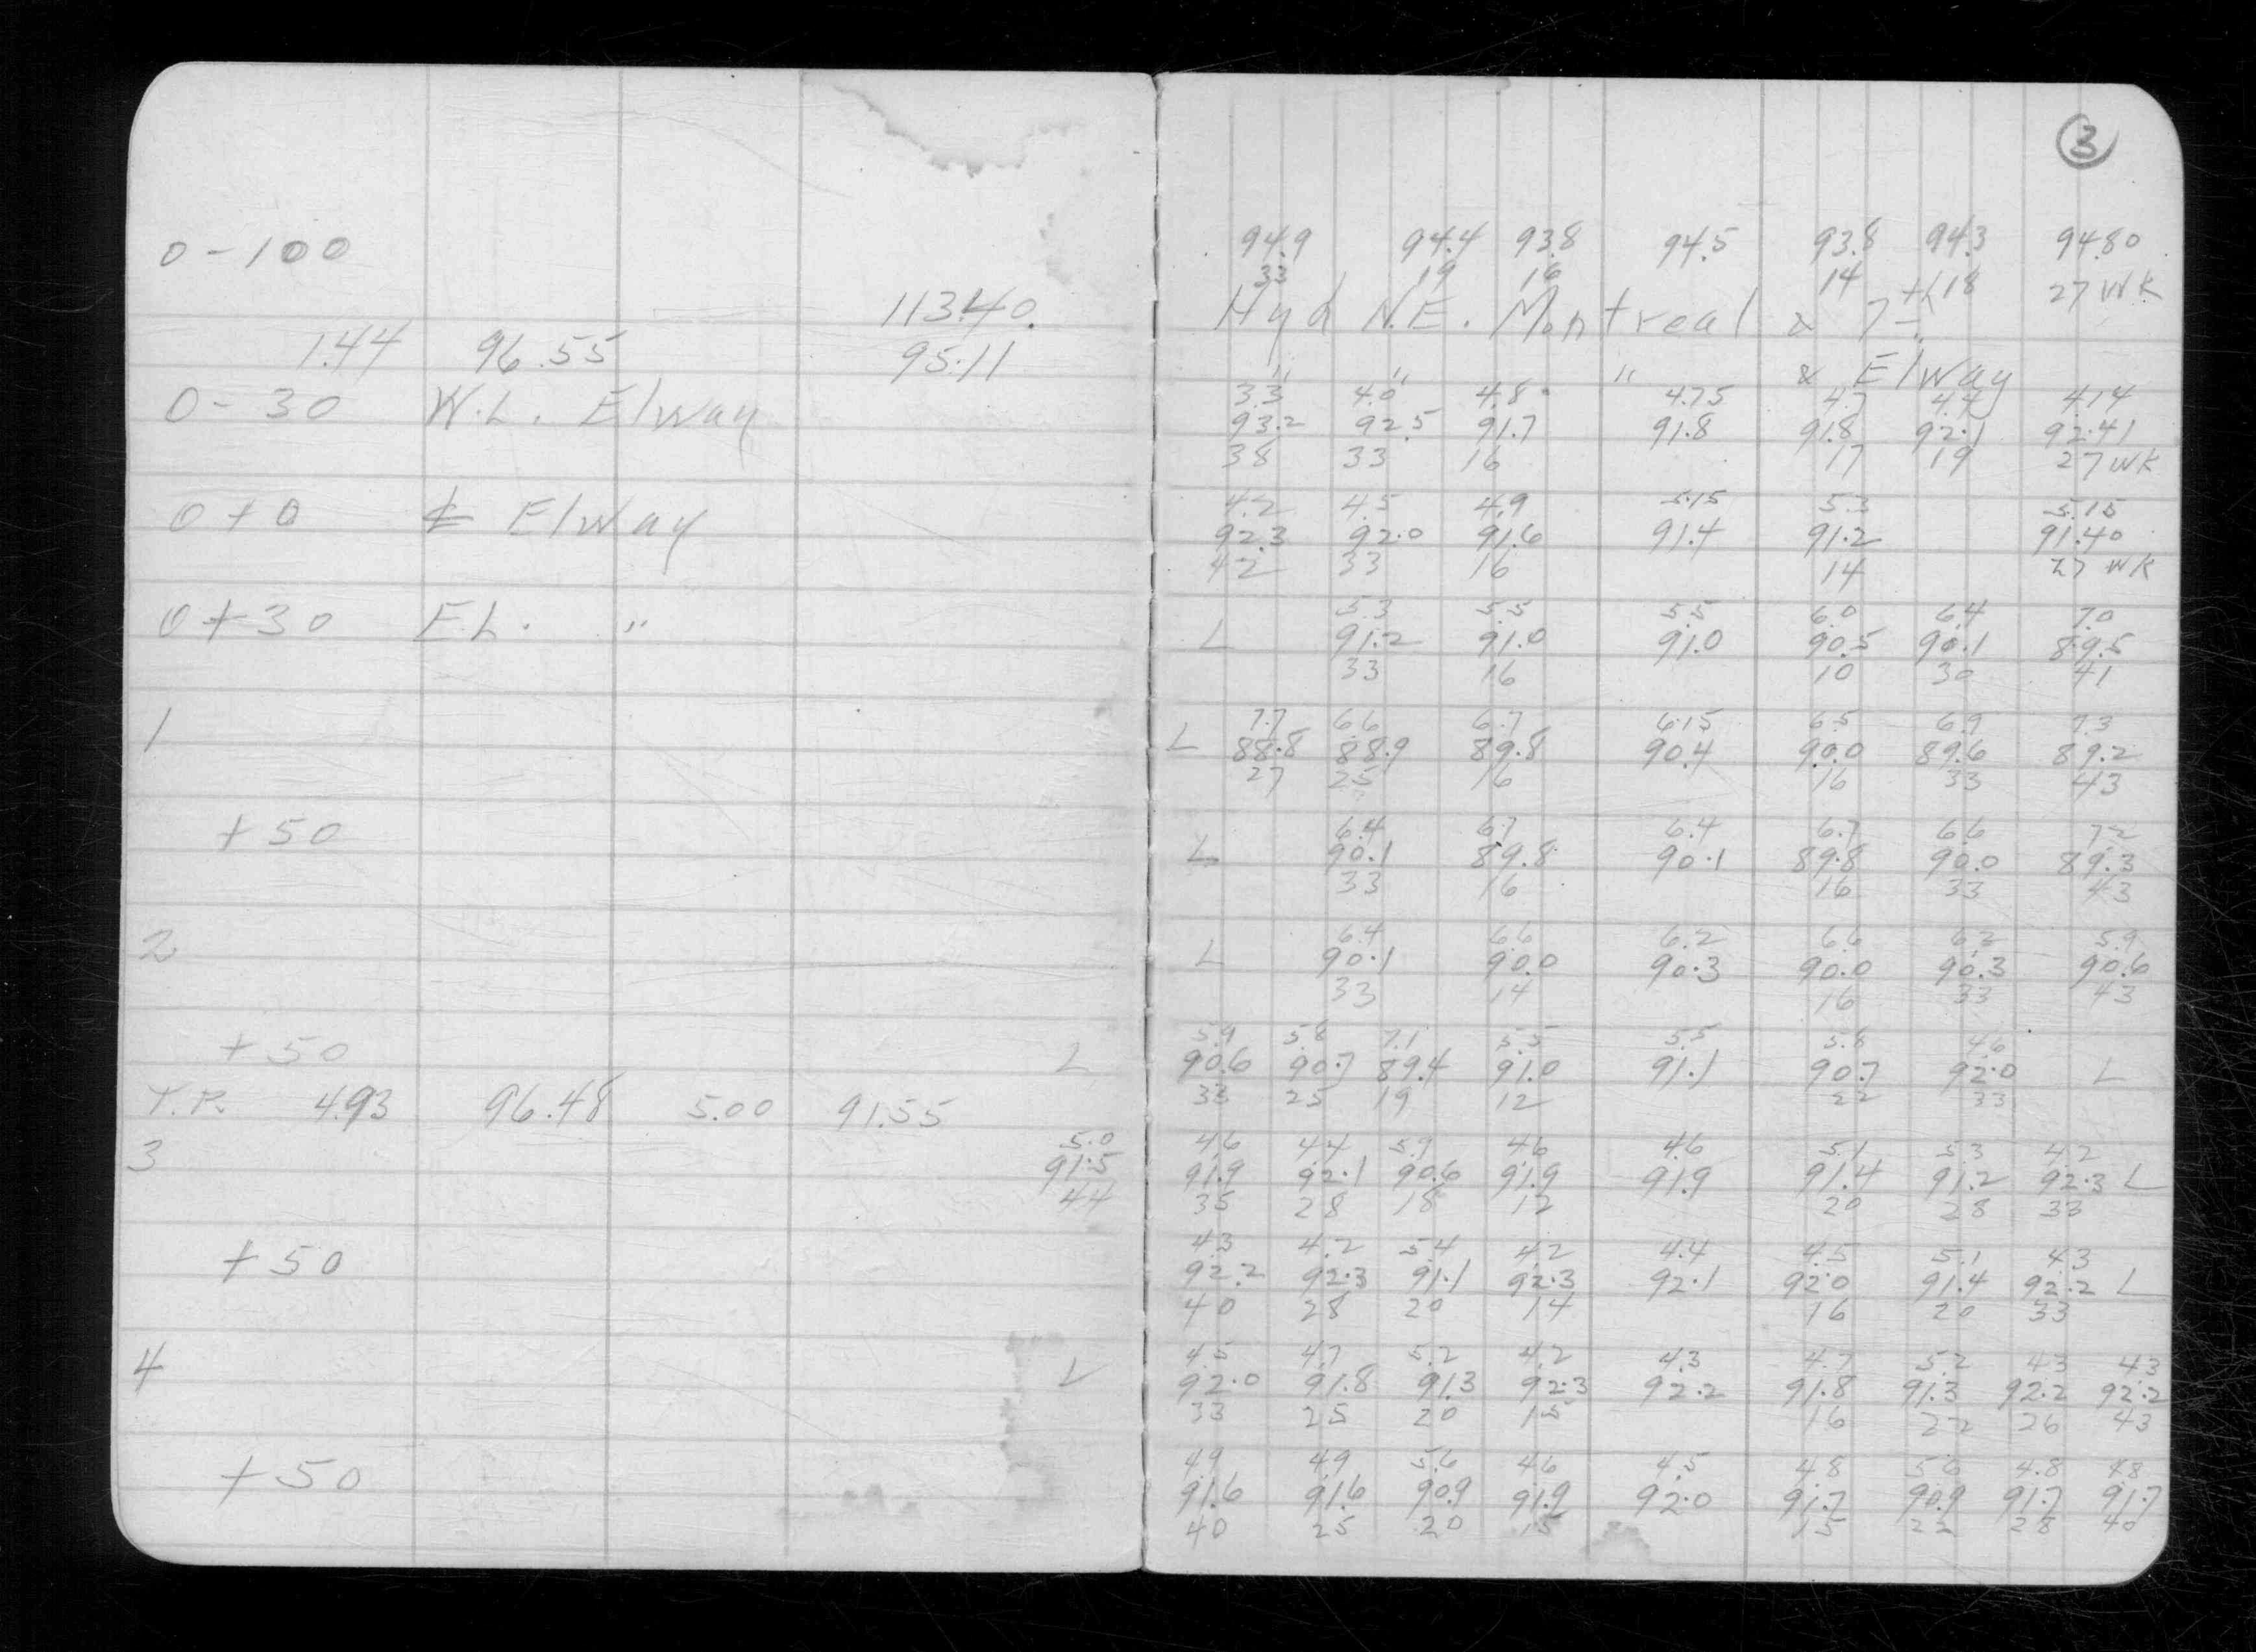 3
0-100 94.9 94.4 93.8 94.5 93.8 94.3 94.80
33 19 16 14 18 27 WK
113.40 Hyd N.E. Montreal & 7th
1.44 96.55 95.11 " " " & Elway
3.3 4.0 4.8 4.75 4.7 4.4 4.14
0-30 W.L. Elway 93.2 92.5 91.7 91.8 91.8 92.1 92.41
38 33 16 17 19 27 WK
4.2 4.5 4.9 5.15 5.3 5.15
0+0 ℄ Elway 92.3 92.0 91.6 91.4 91.2 91.40
42 33 16 14 27 WK
5.3 5.5 5.5 6.0 6.4 7.0
0+30 E.L. " L 91.2 91.0 91.0 90.5 90.1 89.5
33 16 10 30 41
7.7 6.6 6.7 6.15 6.5 6.9 7.3
1 L 88.8 88.9 89.8 90.4 90.0 89.6 89.2
27 25 16 16 33 43
6.4 6.7 6.4 6.7 6.6 7.2
+50 L 90.1 89.8 90.1 89.8 90.0 89.3
33 16 16 33 43
6.4 6.6 6.2 6.6 6.2 5.9
2 L 90.1 90.0 90.3 90.0 90.3 90.6
33 14 16 33 43
5.9 5.8 7.1 5.5 5.5 5.8 4.6
+50 L 90.6 90.7 89.4 91.0 91.1 90.7 92.0 L
33 25 19 12 22 33
T.P. 4.93 96.48 5.00 91.55
5.0 4.6 4.4 5.9 4.6 4.6 5.1 5.3 4.2
3 91.5 91.9 92.1 90.6 91.9 91.9 91.4 91.2 92.3 L
44 35 28 18 12 20 28 33
4.3 4.2 5.4 4.2 4.4 4.5 5.1 4.3
+50 92.2 92.3 91.1 92.3 92.1 92.0 91.4 92.2 L
40 28 20 14 16 20 33
4.5 4.7 5.2 4.2 4.3 4.7 5.2 4.3 4.3
4 L 92.0 91.8 91.3 92.3 92.2 91.8 91.3 92.2 92.2
33 25 20 15 16 22 26 43
4.9 4.9 5.6 4.6 4.5 4.8 5.6 4.8 4.8
+50 91.6 91.6 90.9 91.9 92.0 91.7 90.9 91.7 91.7
40 25 20 15 15 22 28 40